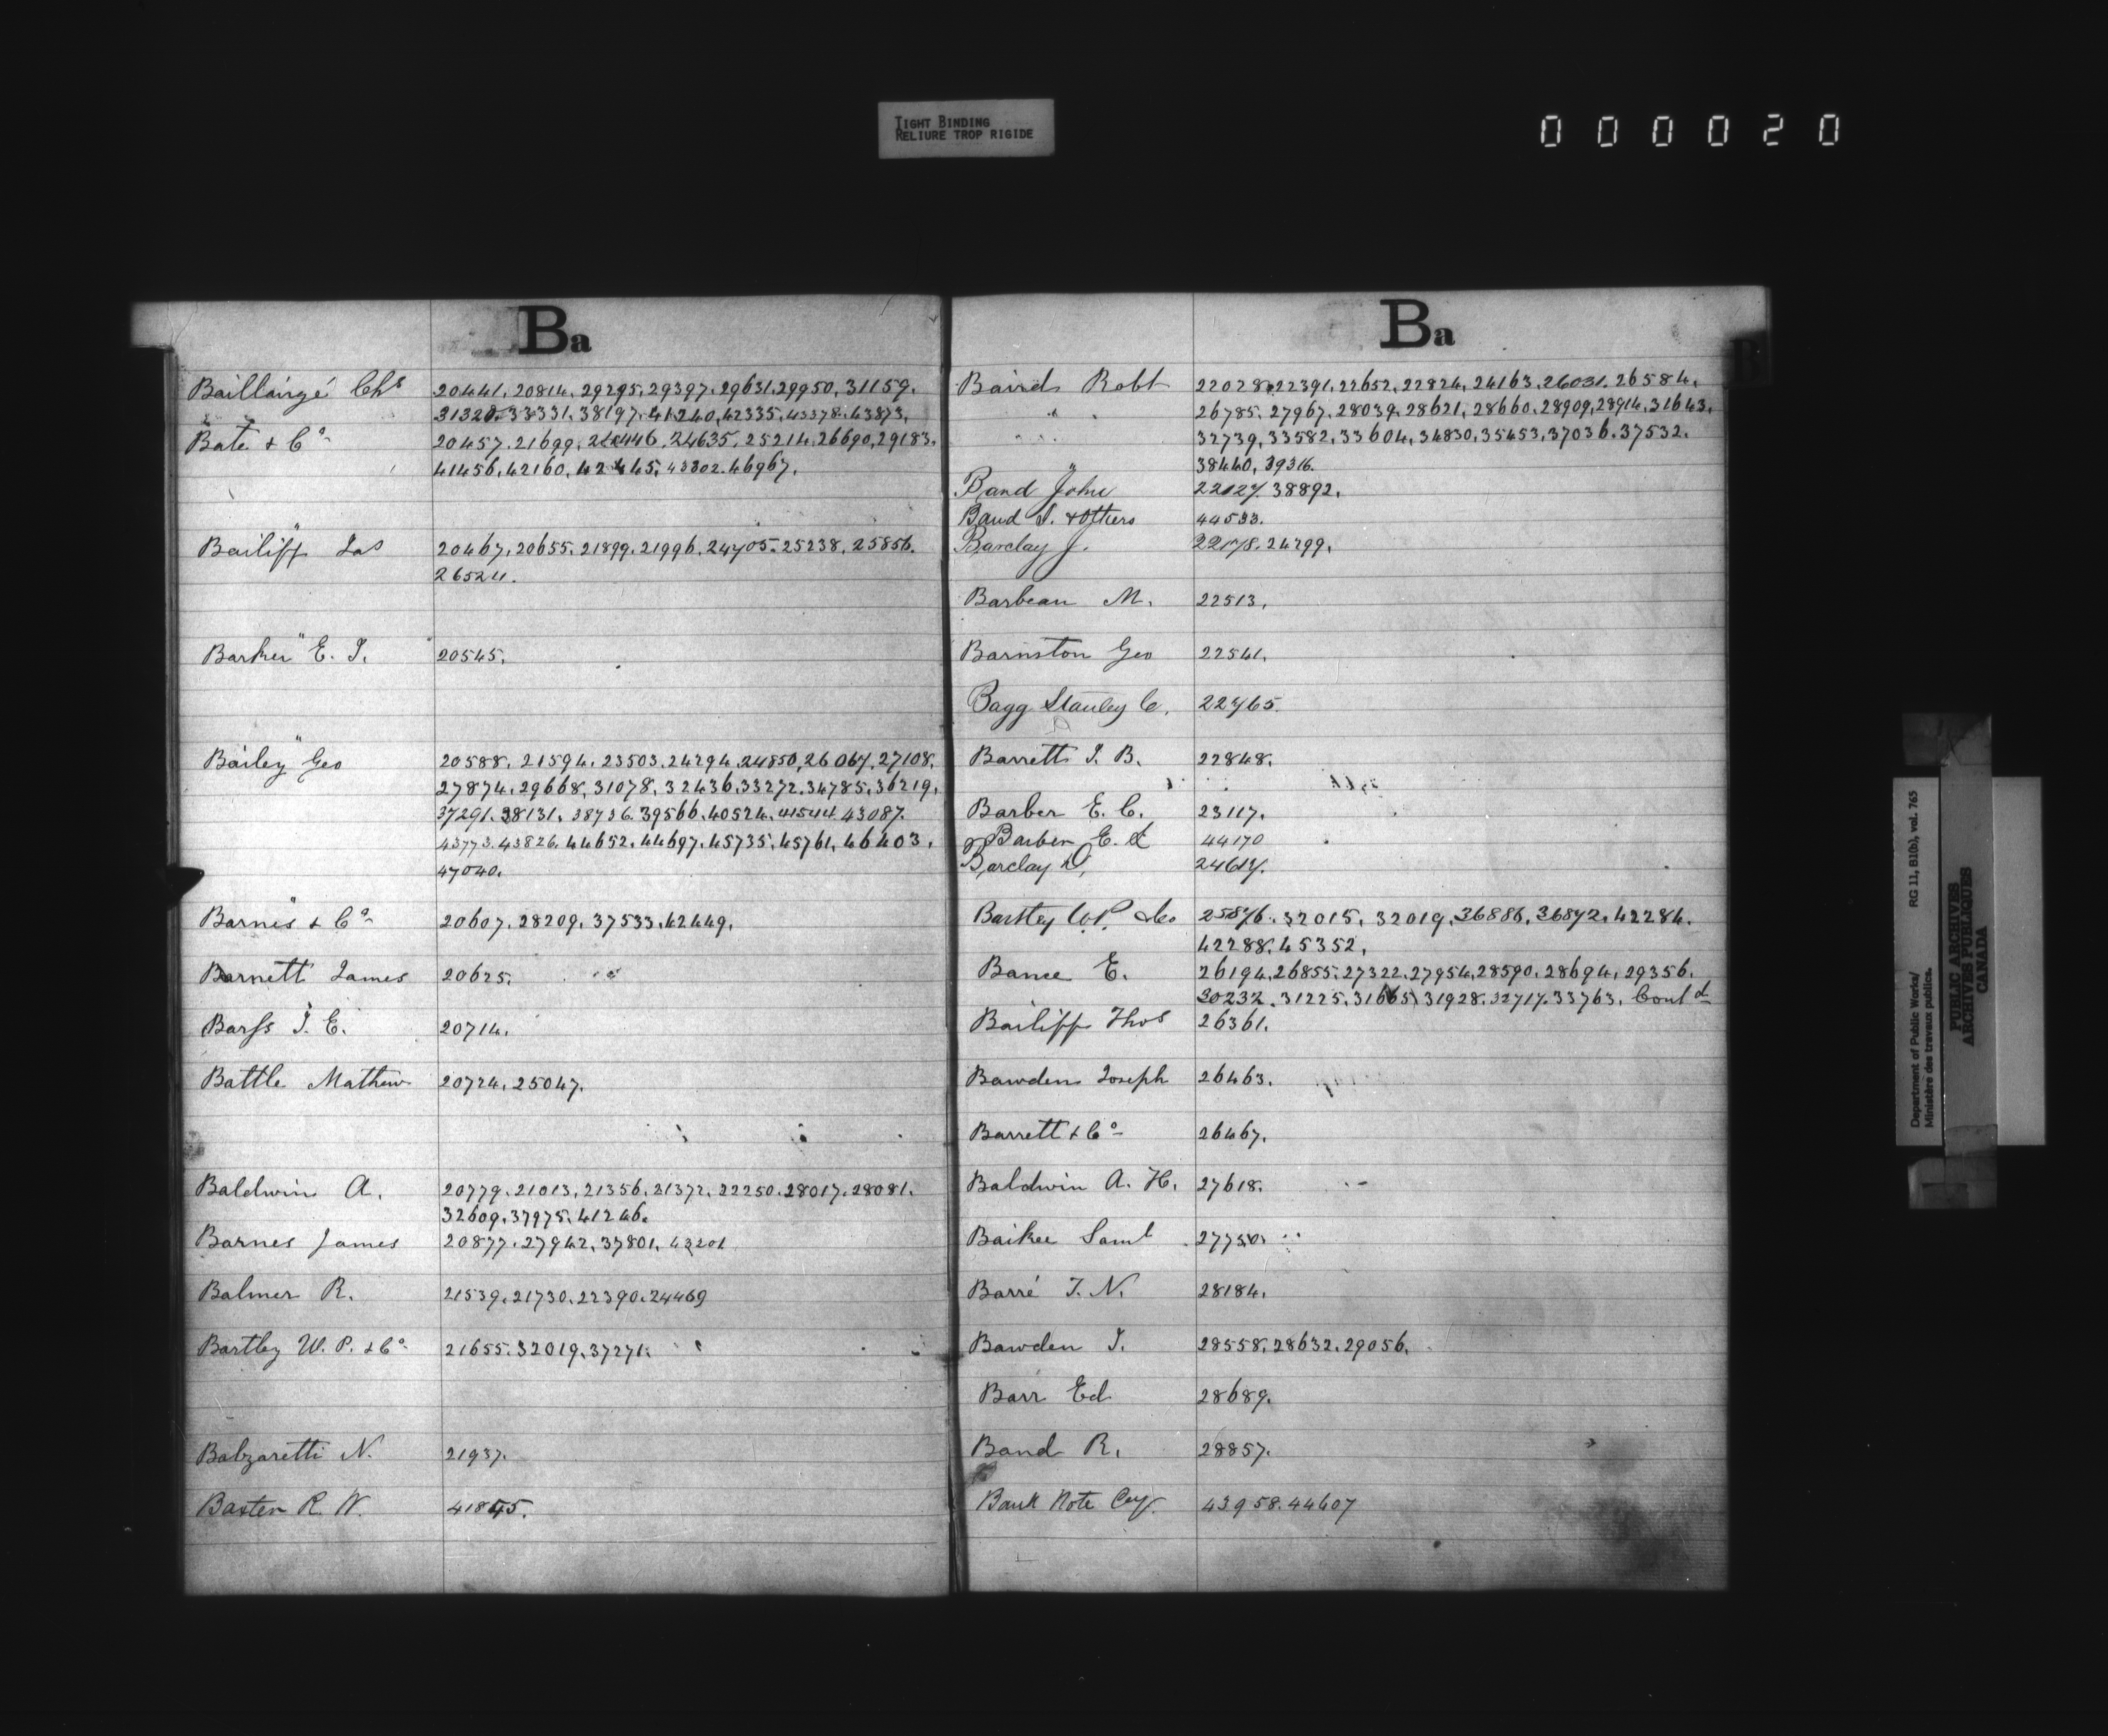 TIGHT BINDING
RELIURE TROP RIGIDE
000020
Ba
Baillairgé Chs 20441. 20814. 29295. 29397. 29631. 29950. 31159.
" " 31320. 33331. 38197. 41240. 42335. 43378. 43873.
Bate & Co 20457. 21699. 24635. 25214. 26690. 29183.
41456. 42160. 42445. 43302. 46967.
"
Bailiff Jas 20467. 20655. 21899. 21996. 24705. 25238. 25856.
26524.
"
Barker E. J. 20545.
"
Bailey Geo 20588. 21594. 23503. 24294. 24850. 26067. 27108.
27874. 29668. 31078. 32436. 33272. 34785. 36219.
37291. 38131. 38736. 39566. 40524. 41544. 43087.
43773. 43826. 44652. 44697. 45735. 45761. 46403.
47040.
"
Barnes & Co 20607. 28209. 37533. 42449.
Barnett James 20625.
Barss J. E. 20714.
Battle Mathew 20724. 25047.
Baldwin A. 20779. 21013. 21356. 21372. 22250. 28017. 28081.
32609. 37975. 41246.
Barnes James 20877. 27942. 37801. 43201
Balmer R. 21539. 21730. 22390. 24469
Bartley W. P. & Co 21655. 32019. 37271.
Babzaretti N. 21937.
Baxter R. W. 41845.
Ba
Baird Robt 22028. 22391. 22652. 22824. 24163. 26031. 26584.
" 26785. 27967. 28039. 28621. 28660. 28909. 28914. 31643.
" 32739. 33582. 33604. 34830. 35453. 37036. 37532.
" 38440. 39316.
Band John 22127. 38892.
Baud J. & others 44533.
Barclay J. 22178. 24299.
Barbeau M. 22513.
Barnston Geo 22541.
Bagg Stanley C. 22765.
Barrett J. B. 22848.
Barber E. C. 23117.
Barber E. C 44170
Barclay D. 24617.
Bartley W.P. & Co 25876. 32015. 32019. 36886. 36872. 42284.
42288. 45352.
Bance E. 26194. 26855. 27322. 27954. 28590. 28694. 29356.
30232. 31225. 31665. 31928. 32717. 33763. Contd
Bailiff Thos 26361.
Bawden Joseph 26463.
Barrett & Co 26467.
Baldwin A. H. 27618.
Baikee Saml 27750.
Barré J. N. 28184.
Bawden J. 28558. 28632. 29056.
Barr Ed 28689.
Band R. 28857.
Bank Note Coy. 43958. 44607
Department of Public Works/
Ministère des travaux publics.
RG 11, B1(b), vol. 765
PUBLIC ARCHIVES
ARCHIVES PUBLIQUES
CANADA